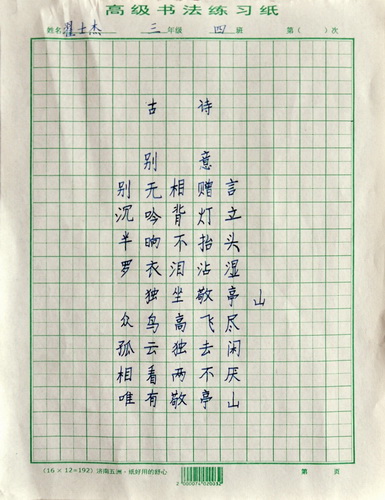 高级书法练习纸
姓名翟士杰 三年级 四班 第( )次
古诗
别意
别无相赠言
沉吟背灯立
半晌不抬头
罗衣泪沾湿
独坐敬亭山
众鸟高飞尽
孤云独去闲
相看两不厌
唯有敬亭山
(16×12=192) 济南五洲·纸好用的舒心